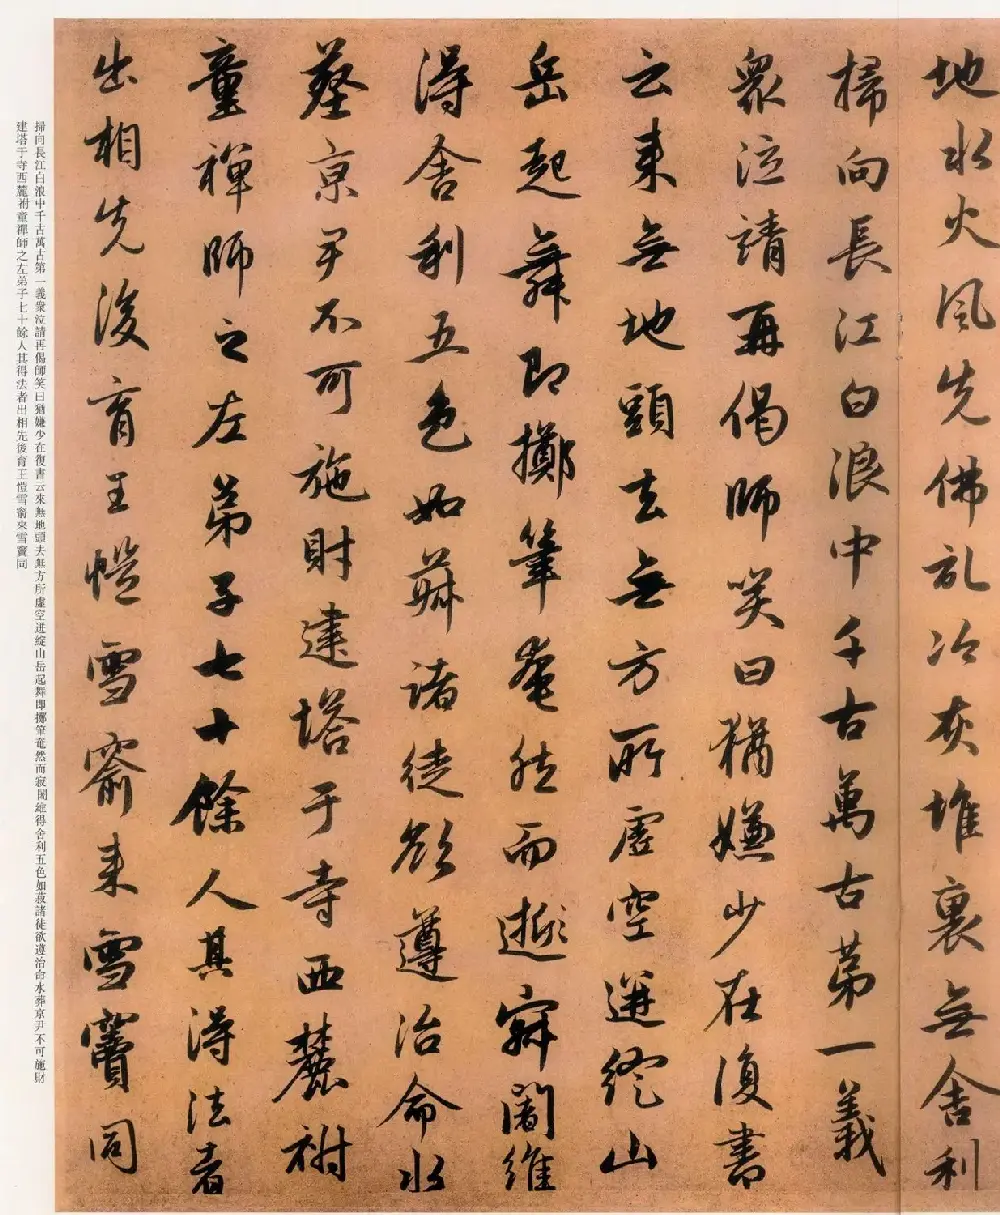 地水火風先佛記冷灰堆裏無舍利
掃向長江白浪中千古萬古第一義
眾泣請再偈師笑曰猶嫌少在復書
云来無地頭去無方所虛空迸綻山
岳起舞即擲筆奄然而逝寂闍維
得舍利五色如菽諸徒欲遵治命水
葬京尹不可施財建塔于寺西麓祔
童禪師之左弟子七十餘人其得法者
出相先後育王愷雪窬来雪竇同
掃向長江白浪中千古萬古第一義衆泣請再偈師笑曰猶嫌少在復書云來無地頭去無方所虛空迸綻山岳起舞即擲筆奄然而寂闍維得舍利五色如菽諸徒欲遵治命水葬京尹不可施財
建塔于寺西麓祔童禪師之左弟子七十餘人其得法者出相先後育王愷雪窬來雪竇同